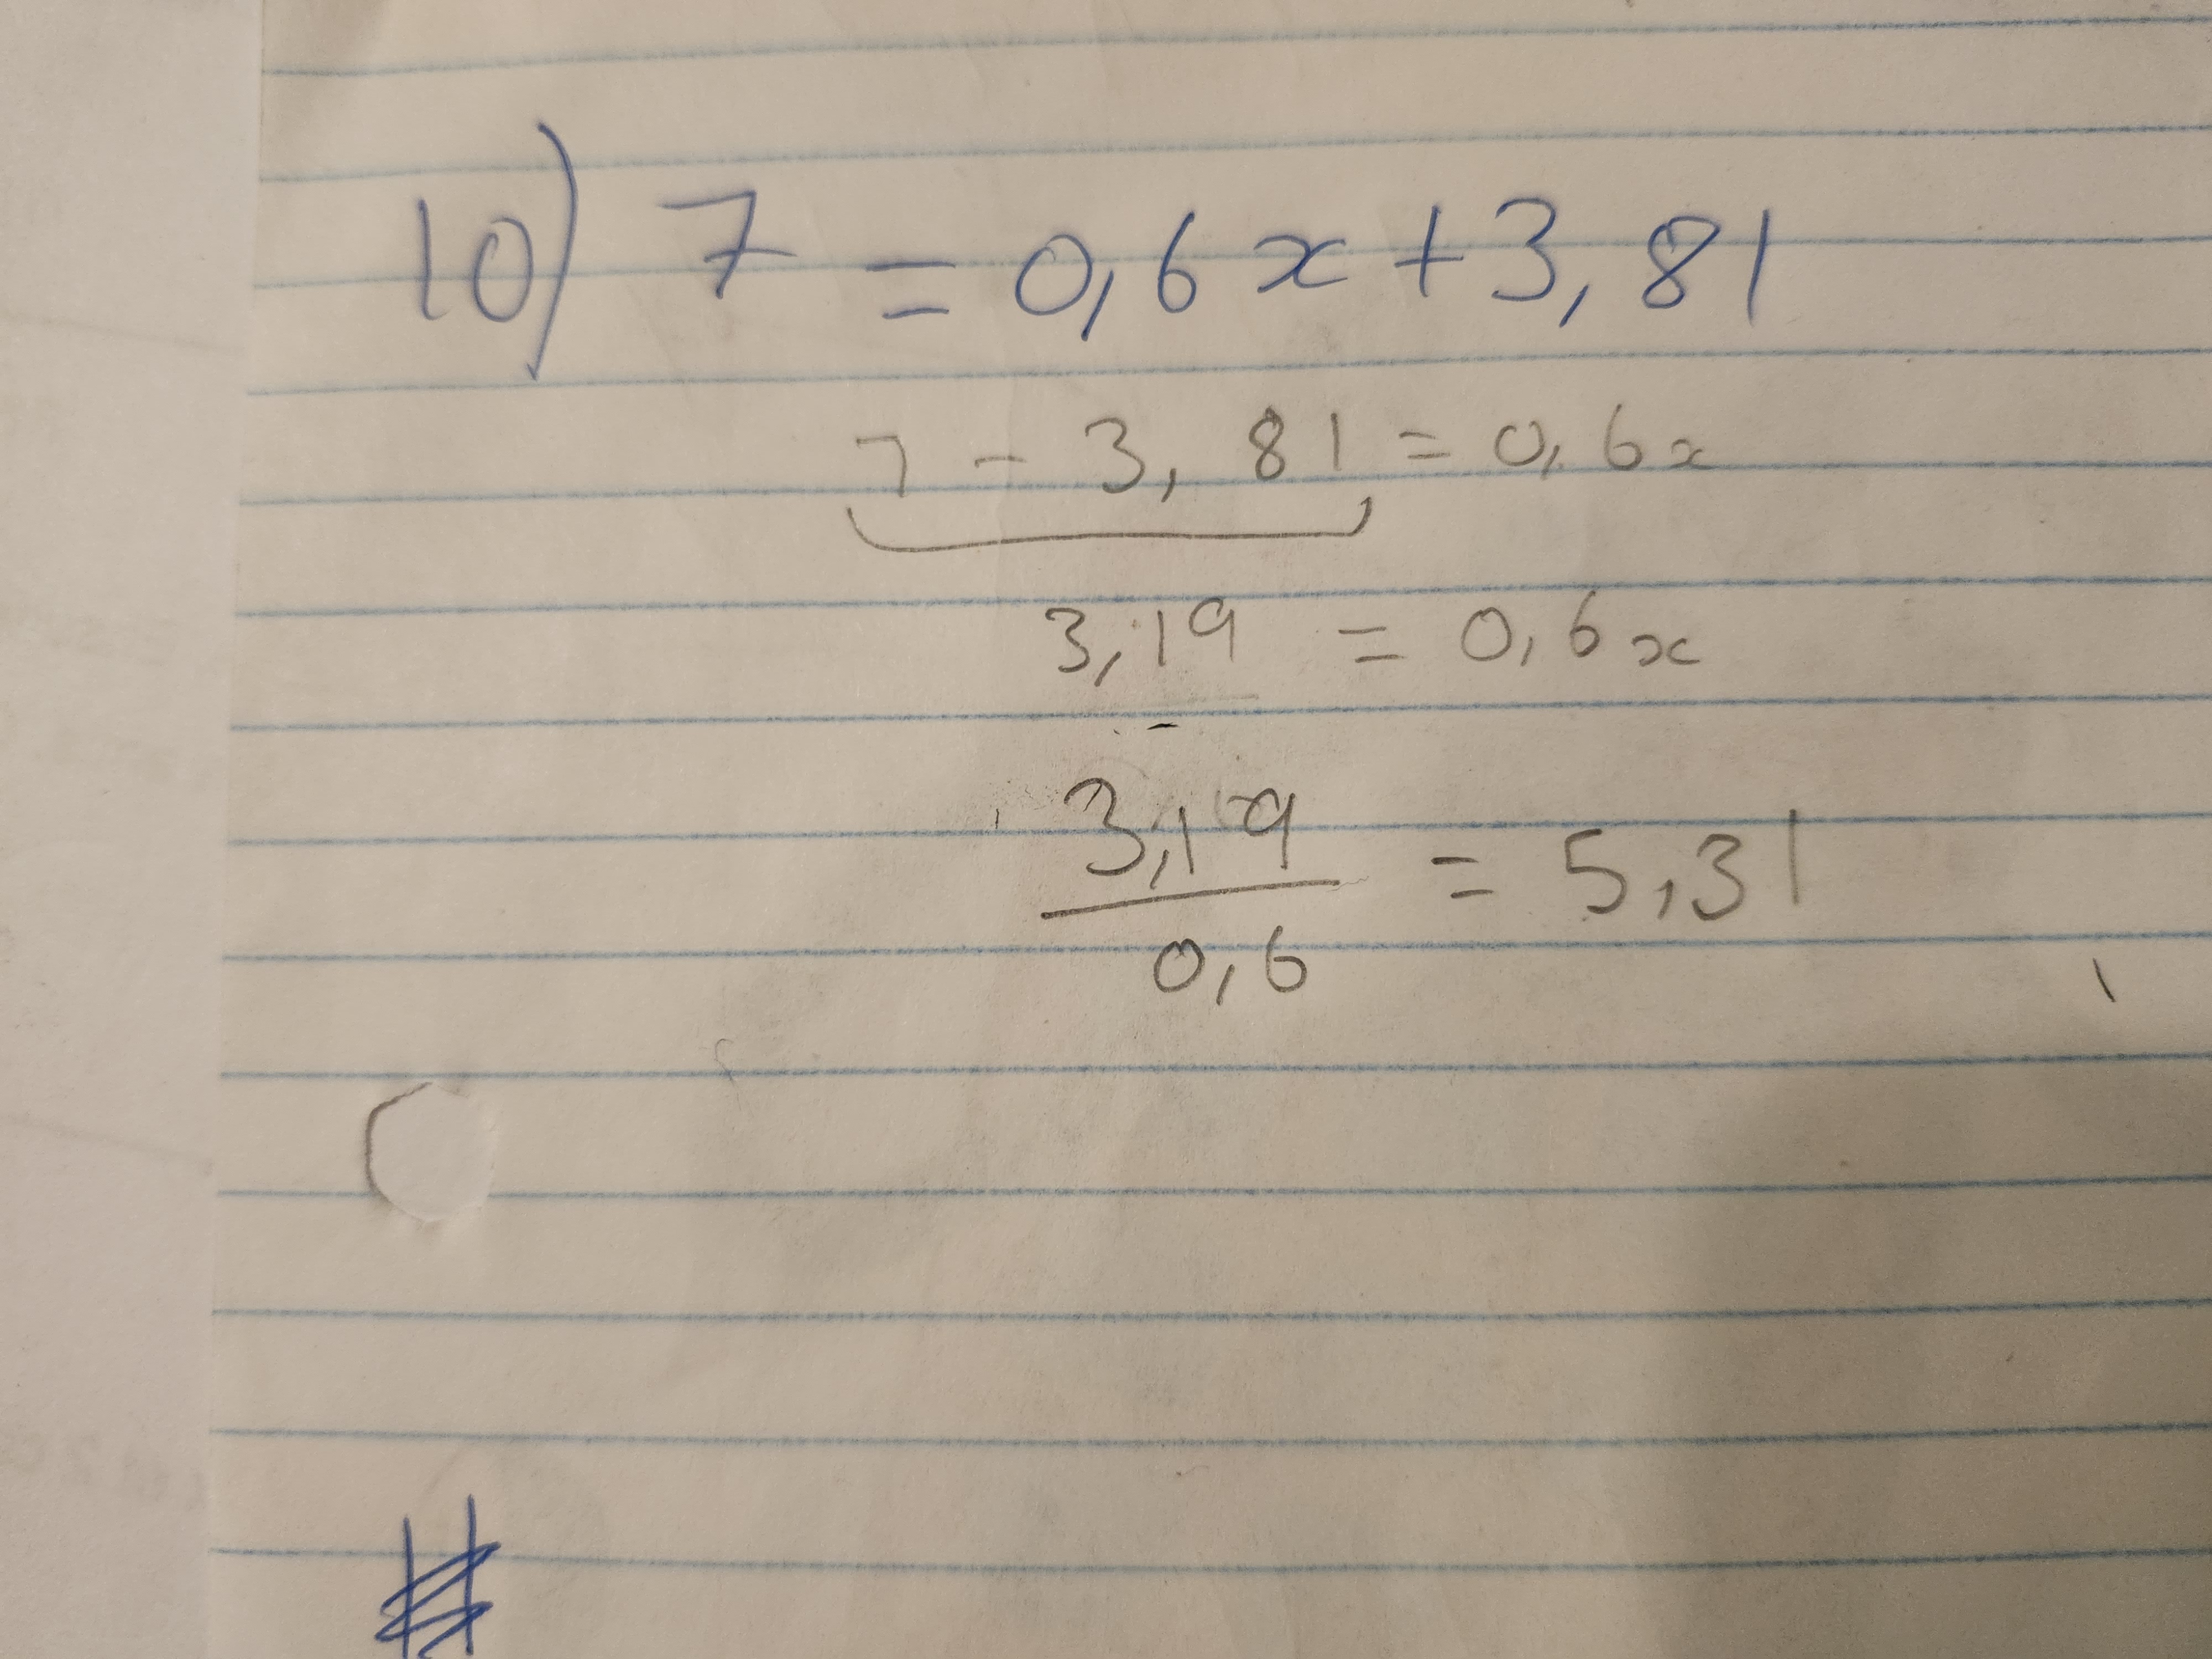 10) 7 = 0,6x + 3,81
7 - 3, 81 = 0,6x
3,19 = 0,6x
3,19
0,6
= 5,31